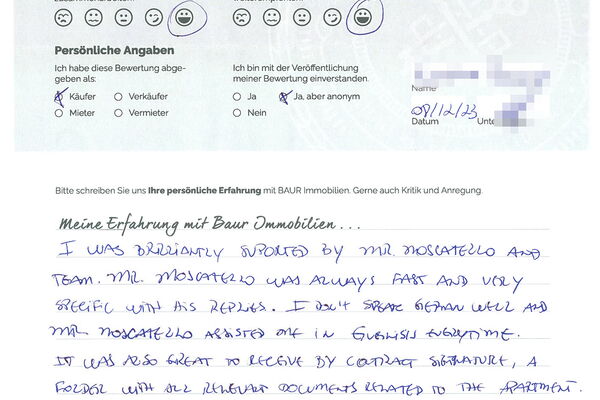 Persönliche Angaben
Ich habe diese Bewertung abge-
geben als:
Käufer
Verkäufer
Mieter
Vermieter
Ich bin mit der Veröffentlichung
meiner Bewertung einverstanden.
Ja
Ja, aber anonym
Nein
Name
08/12/23
Datum
Unte
Bitte schreiben Sie uns Ihre persönliche Erfahrung mit BAUR Immobilien. Gerne auch Kritik und Anregung.
Meine Erfahrung mit Baur Immobilien ...
I WAS BRILLIANTLY SUPORTED BY MR. MOSCATELLO AND
TEAM. MR. MOSCATELLO WAS ALWAYS FAST AND VERY
SPECIFIC WITH HIS REPLIES. I DON'T SPEAK GERMAN WELL AND
MR. MOSCATELLO ASSISTED ME IN ENGLISH EVERYTIME.
IT WAS ALSO GREAT TO RECEIVE BY CONTRACT SIGNATURE, A
FOLDER WITH ALL RELEVANT DOCUMENTS RELATED TO THE APARTMENT.